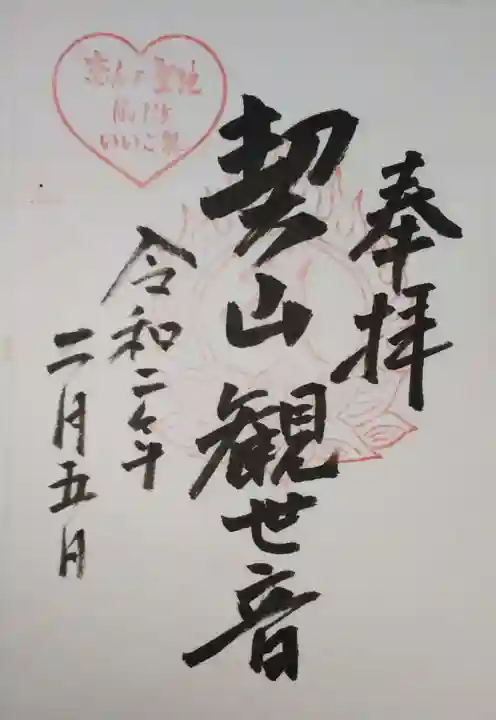 奉拝
契山観世音
令和二年
二月五日
恋人の聖地
いいご縁